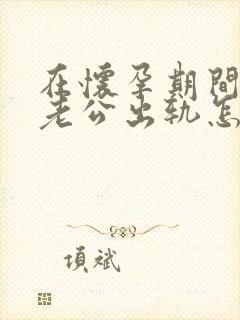 在懷孕期間
老公出軌怎
項斌